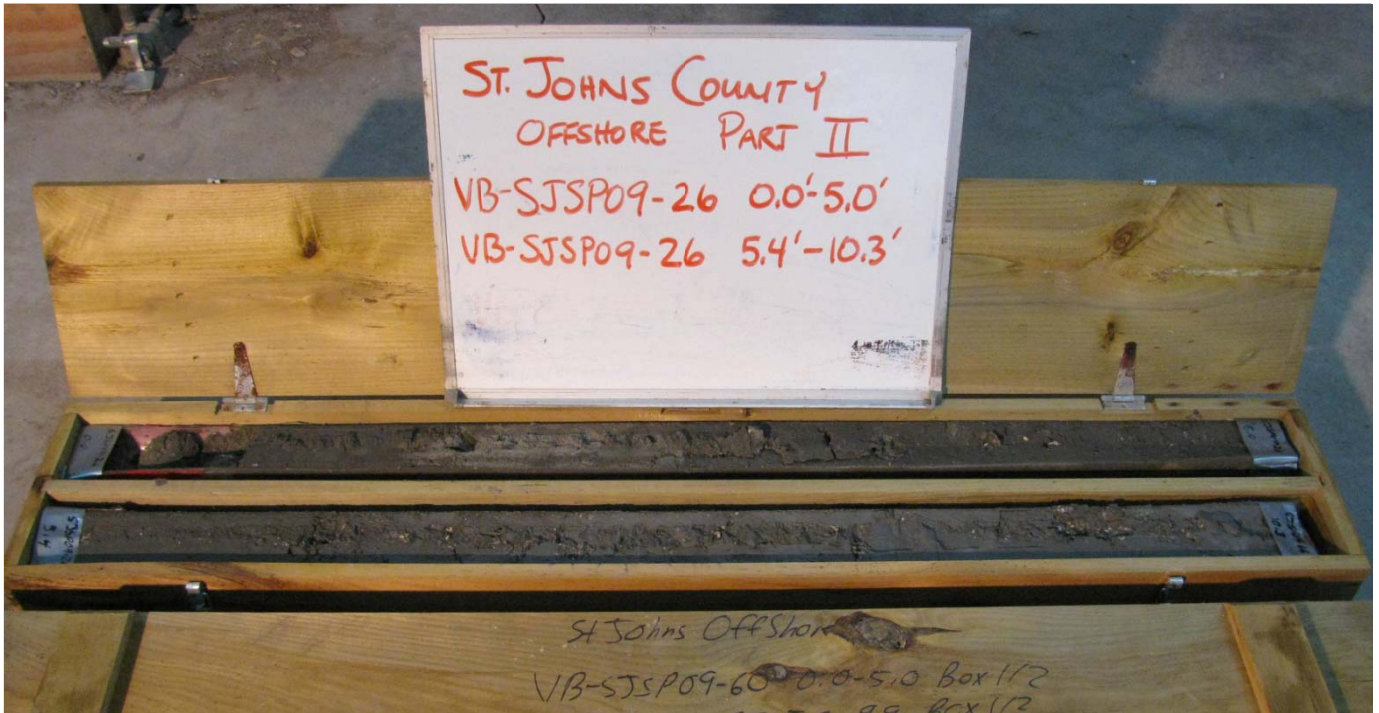 ST. JOHNS COUNTY
OFFSHORE PART II
VB-SJSP09-26 0.0'-5.0'
VB-SJSP09-26 5.4'-10.3'
St Johns OffShore
VB-SJSP09-60 0.0-5.0 Box 1/2
Box 1/2